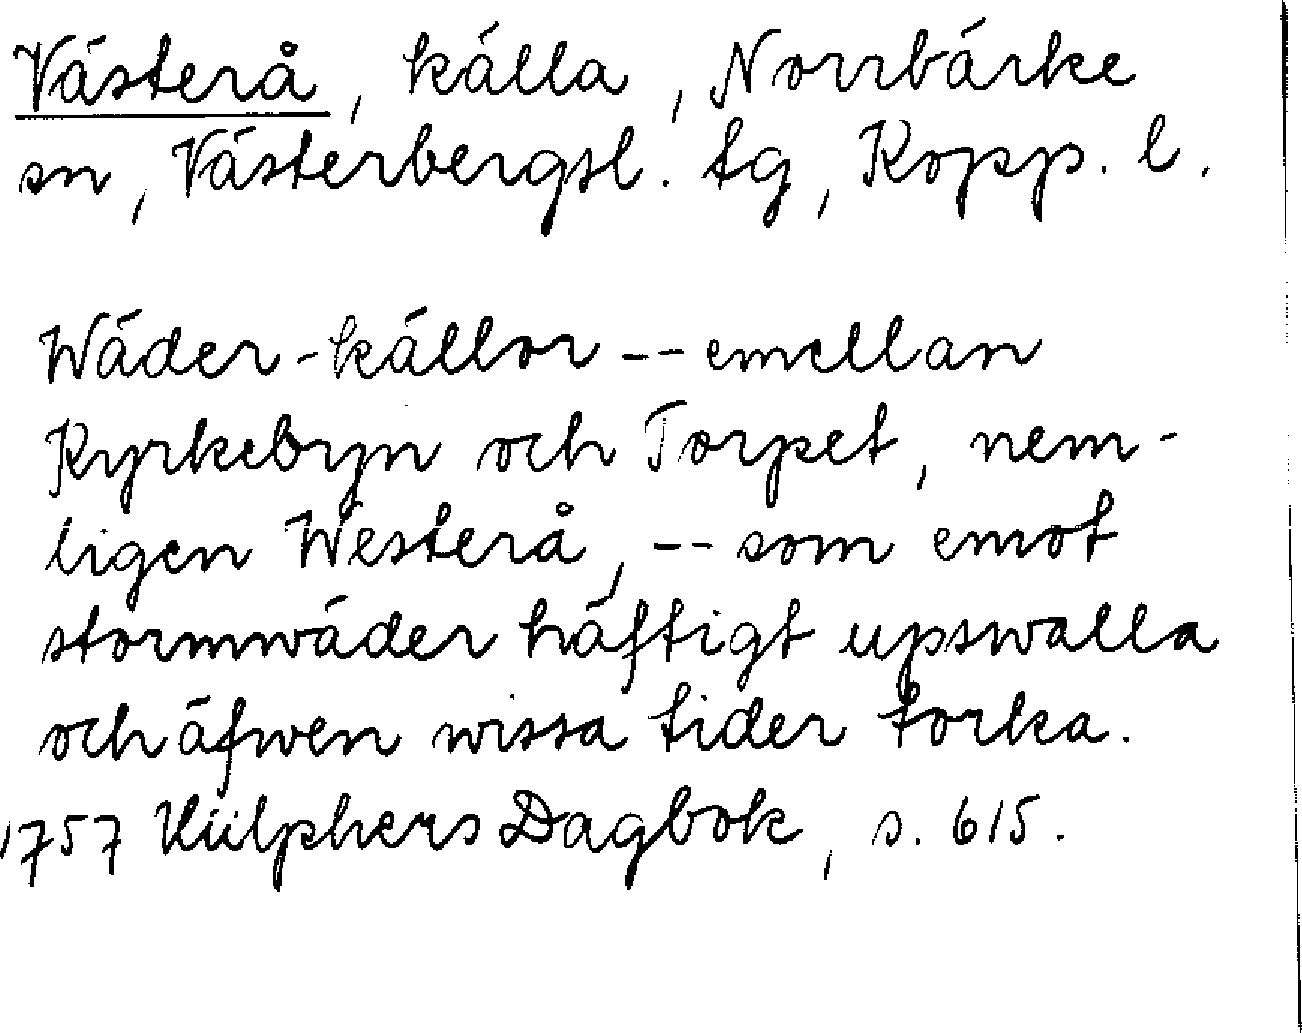 Västerå, källa, Norrbärke
sn, Västerbergsl. tg, Kopp. l.
Wäder-källor -- emellan
Kyrkebyn och Torpet, nem-
ligen Westerå, -- som emot
stormwäder häftigt upswalla
och äfwen wissa tider torka.
1757 Külphers Dagbok, s. 615.